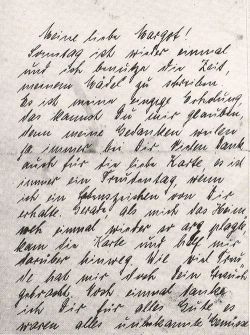 Meine liebe Margot!
Sonntag ist wieder einmal
und ich benütze die Zeit,
meinem Mädel zu schreiben.
Es ist meine einzige Erholung
das kannst Du mir glauben,
denn meine Gedanken weilen
ja immer bei Dir. Vielen Dank
auch für die liebe Karte, es ist
immer ein Freudentag, wenn
ich ein Lebenszeichen von Dir
erhalte. Gerade als mich das
noch einmal wieder so arg plagte,
kam die Karte und half mir
darüber hinweg. Wie viel Freu-
de hat mir doch Dein
gebracht. Noch einmal danke
ich Dir für alles Gute es
waren alles unbekannte